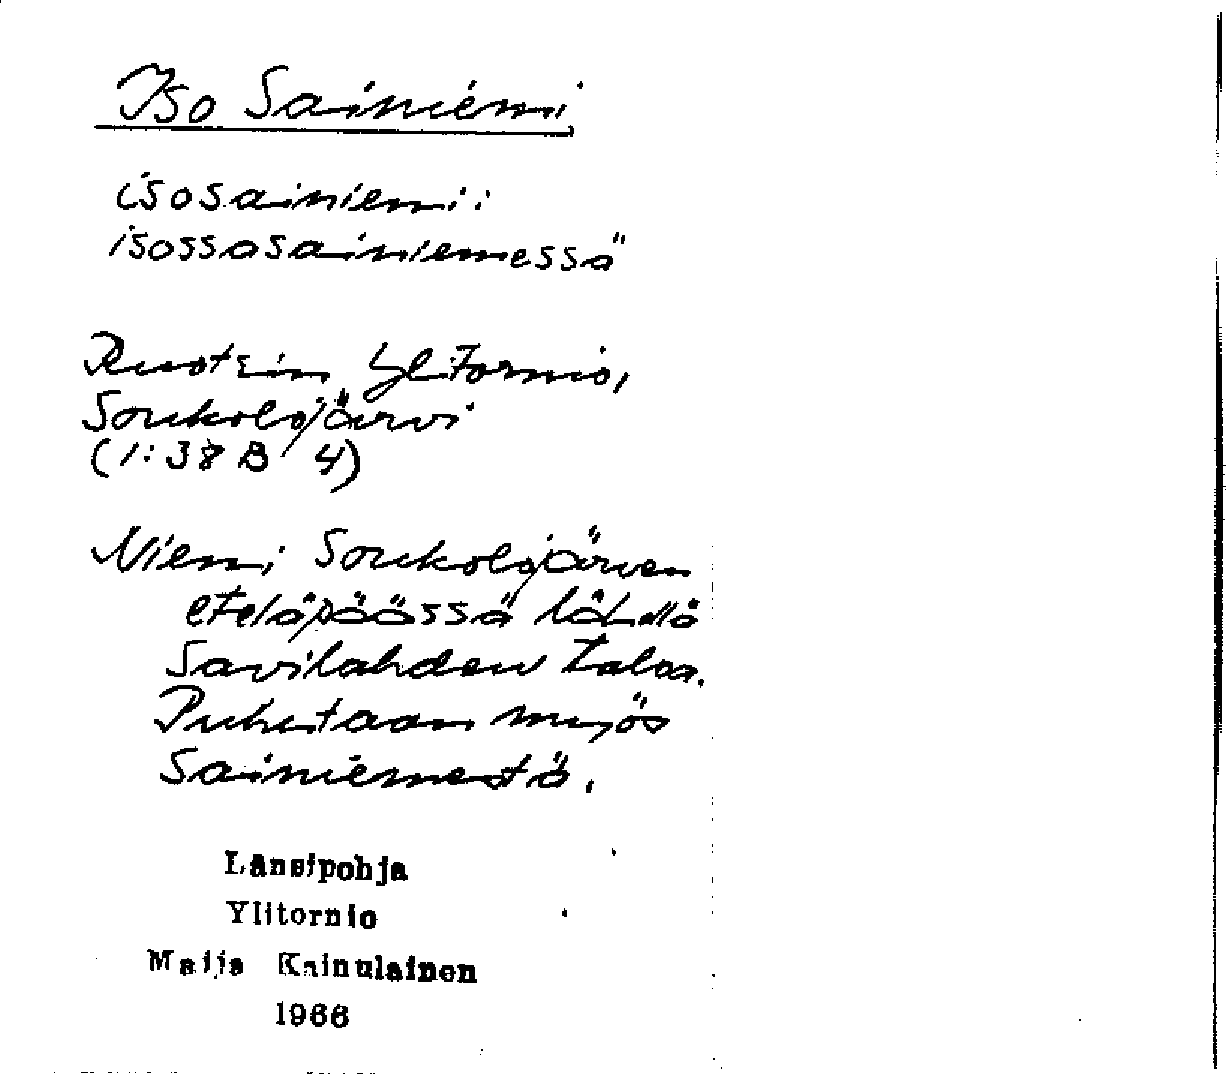 Iso Sainiemi
isosainiemi:
isossasainiemessä
Ruotsin Ylitornio,
Soukolojärvi
(1:38 B 4)
Niemi Soukolojärven
eteläpäässä lähellä
Savilahden taloa.
Puhutaan myös
Sainiemestä.
Länsipohja
Ylitornio
Maija Kainulainen
1966